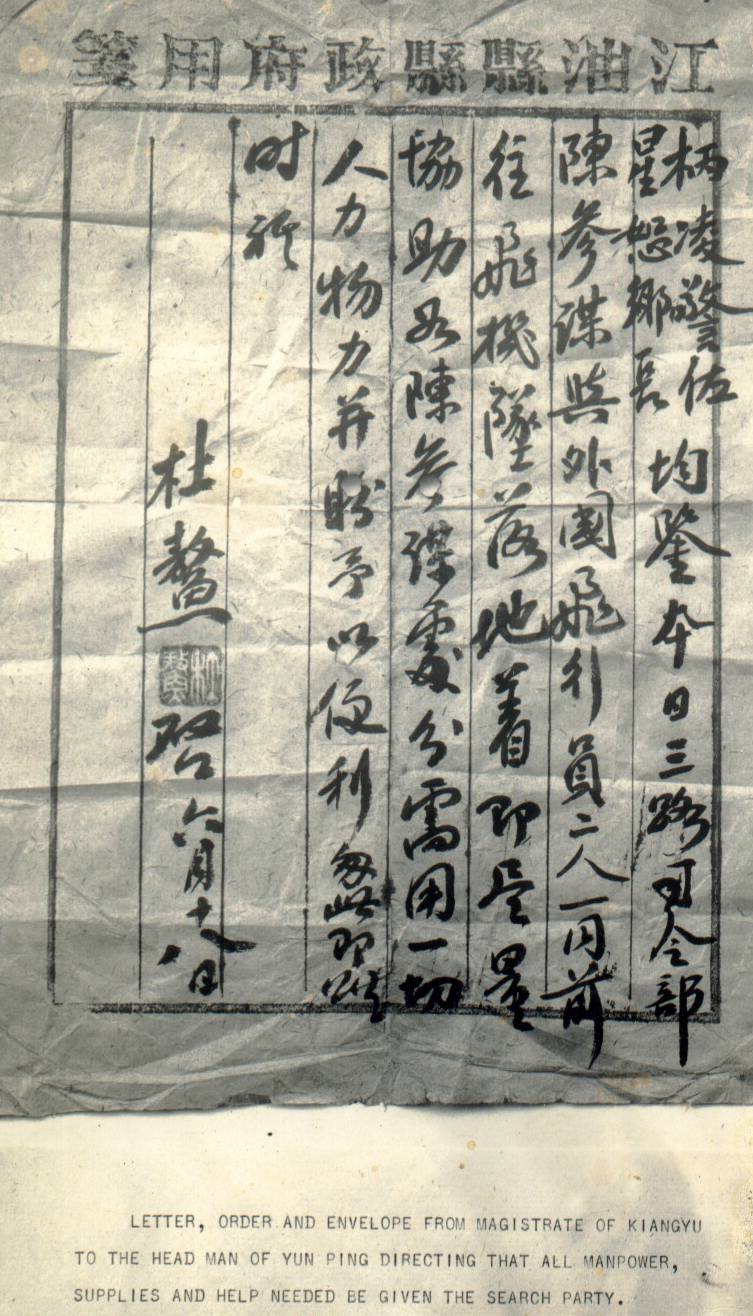 江油縣縣政府用箋
栖凌警佐
星恕鄉長 均鑒本日三路司令部
陳參謀與外國飛行員二人一同前
往飛機墜落地着即尽量
協助如陳參謀處分需用一切
人力物力并盼予以便利匆此即頌
时祺
杜鰲
啓六月十八日
LETTER, ORDER AND ENVELOPE FROM MAGISTRATE OF KIANGYU
TO THE HEAD MAN OF YUN PING DIRECTING THAT ALL MANPOWER,
SUPPLIES AND HELP NEEDED BE GIVEN THE SEARCH PARTY.